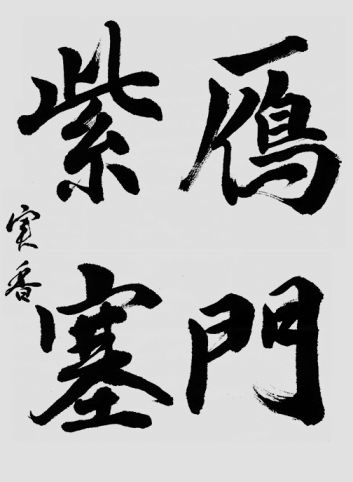 鴈門
紫塞
実香